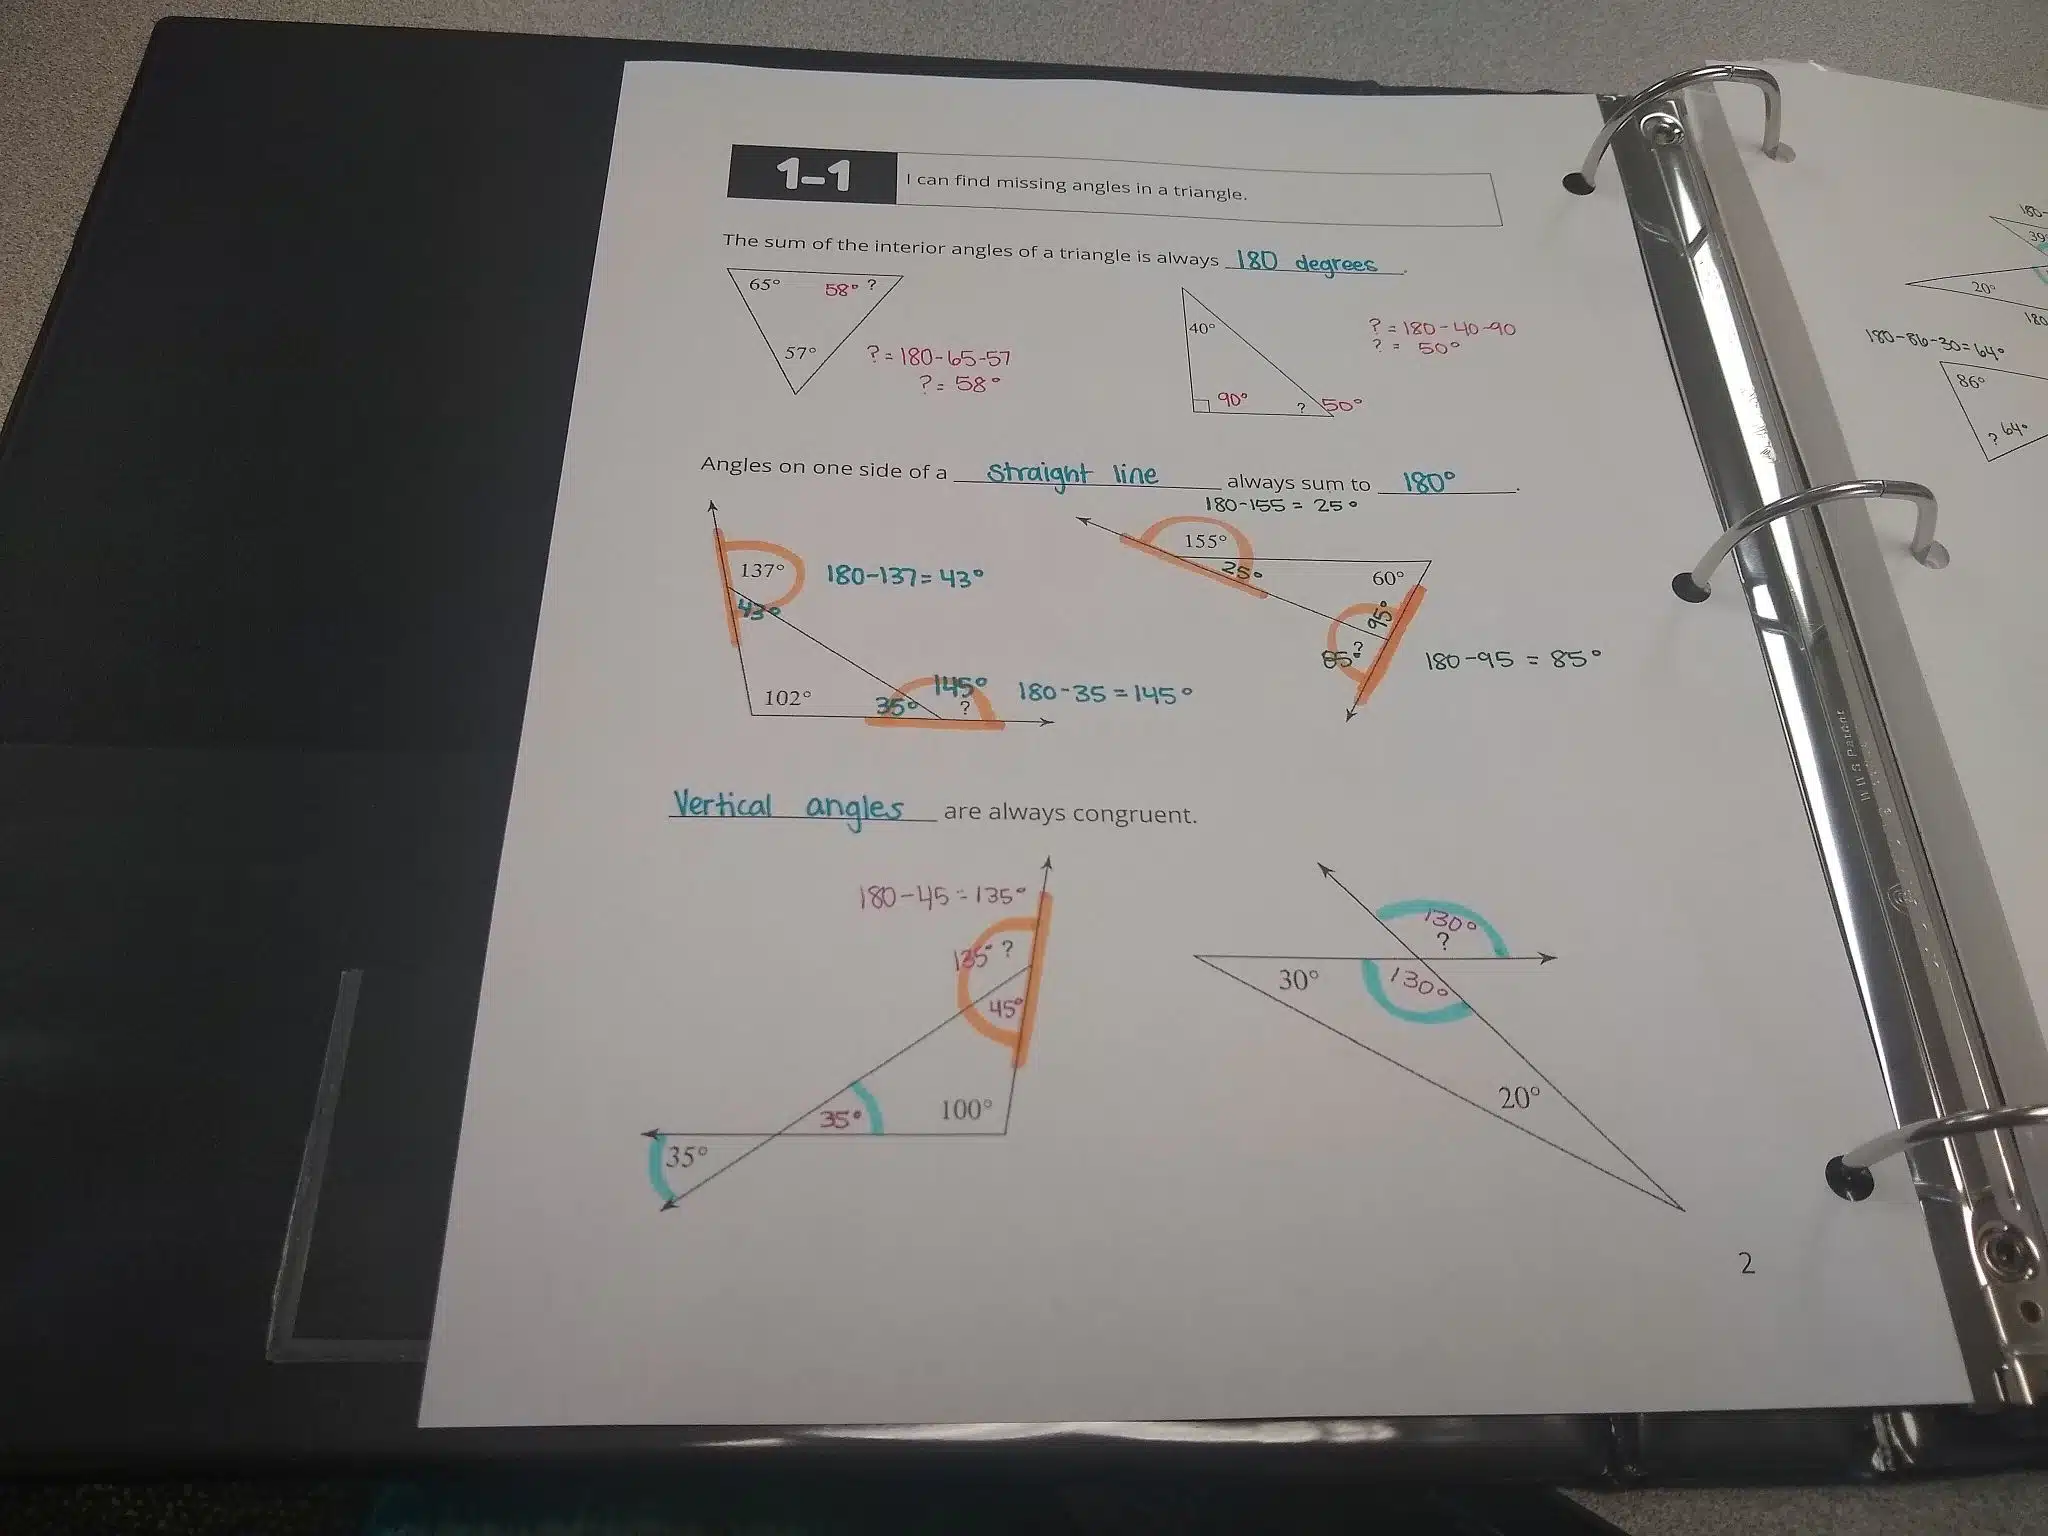 1-1 I can find missing angles in a triangle.
The sum of the interior angles of a triangle is always 180 degrees.
65° 58° ?
57°
? = 180-65-57
? = 58°
40°
90° ? 50°
? = 180-40-90
? = 50°
Angles on one side of a straight line always sum to 180°.
137°
43°
180-137 = 43°
102° 35° 145° ?
180-35 = 145°
180-155 = 25°
155°
25° 60°
95°
85° ?
180-95 = 85°
Vertical angles are always congruent.
180-45 = 135°
135° ?
45°
35° 100°
35°
130°
?
30° 130°
20°
2
180-
39°
20°
180
180-86-30=64°
86°
? 64°